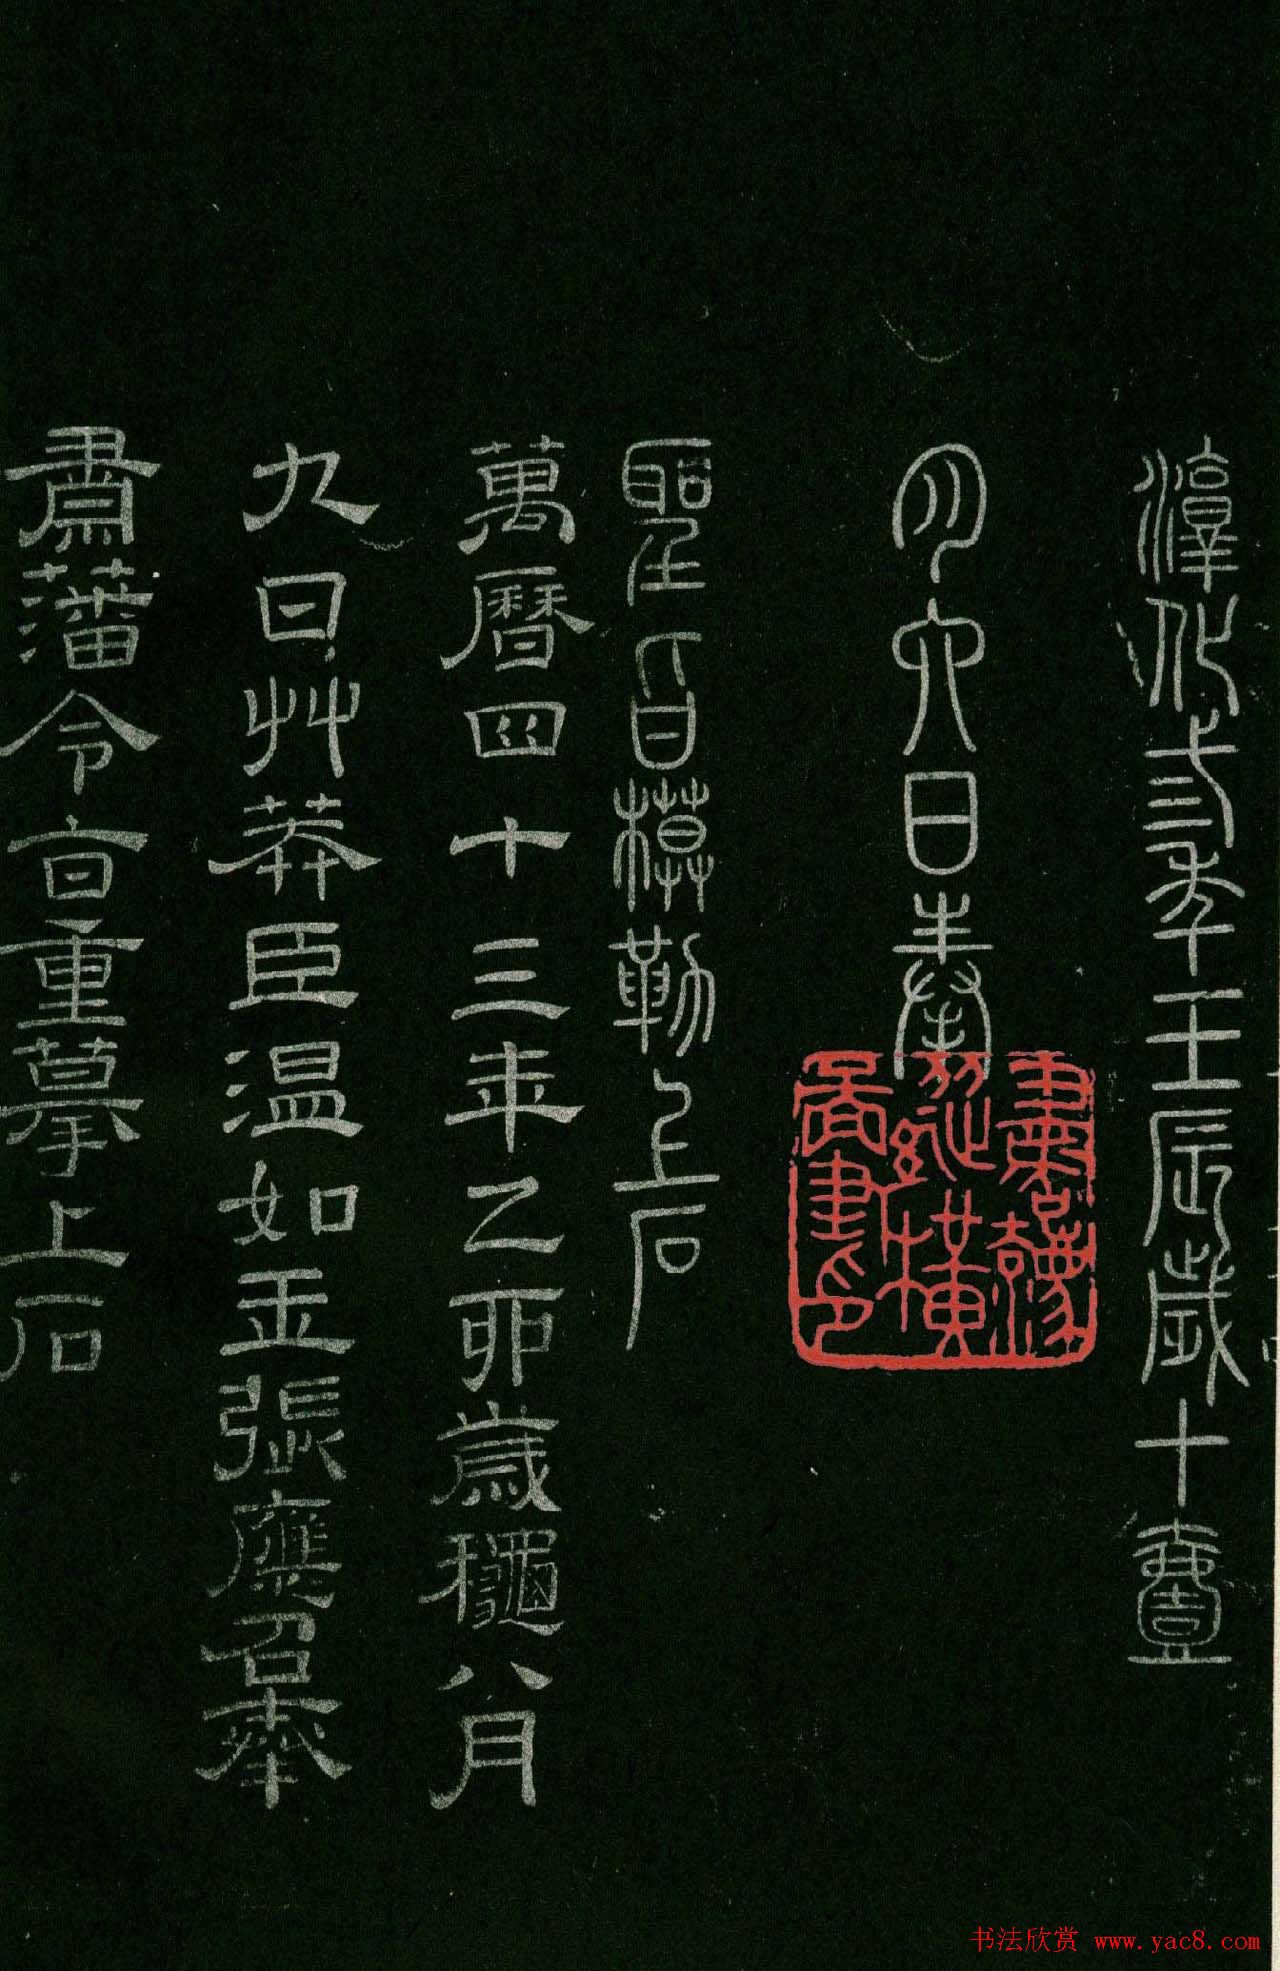 淳化弎年壬辰歲十壹
月六日奉
聖旨模勒上石
萬曆四十三年乙卯歲龝八月
九日艸莽臣温如玉張應召奉
肅藩令旨重摹上石
书法欣赏 www.yac8.com